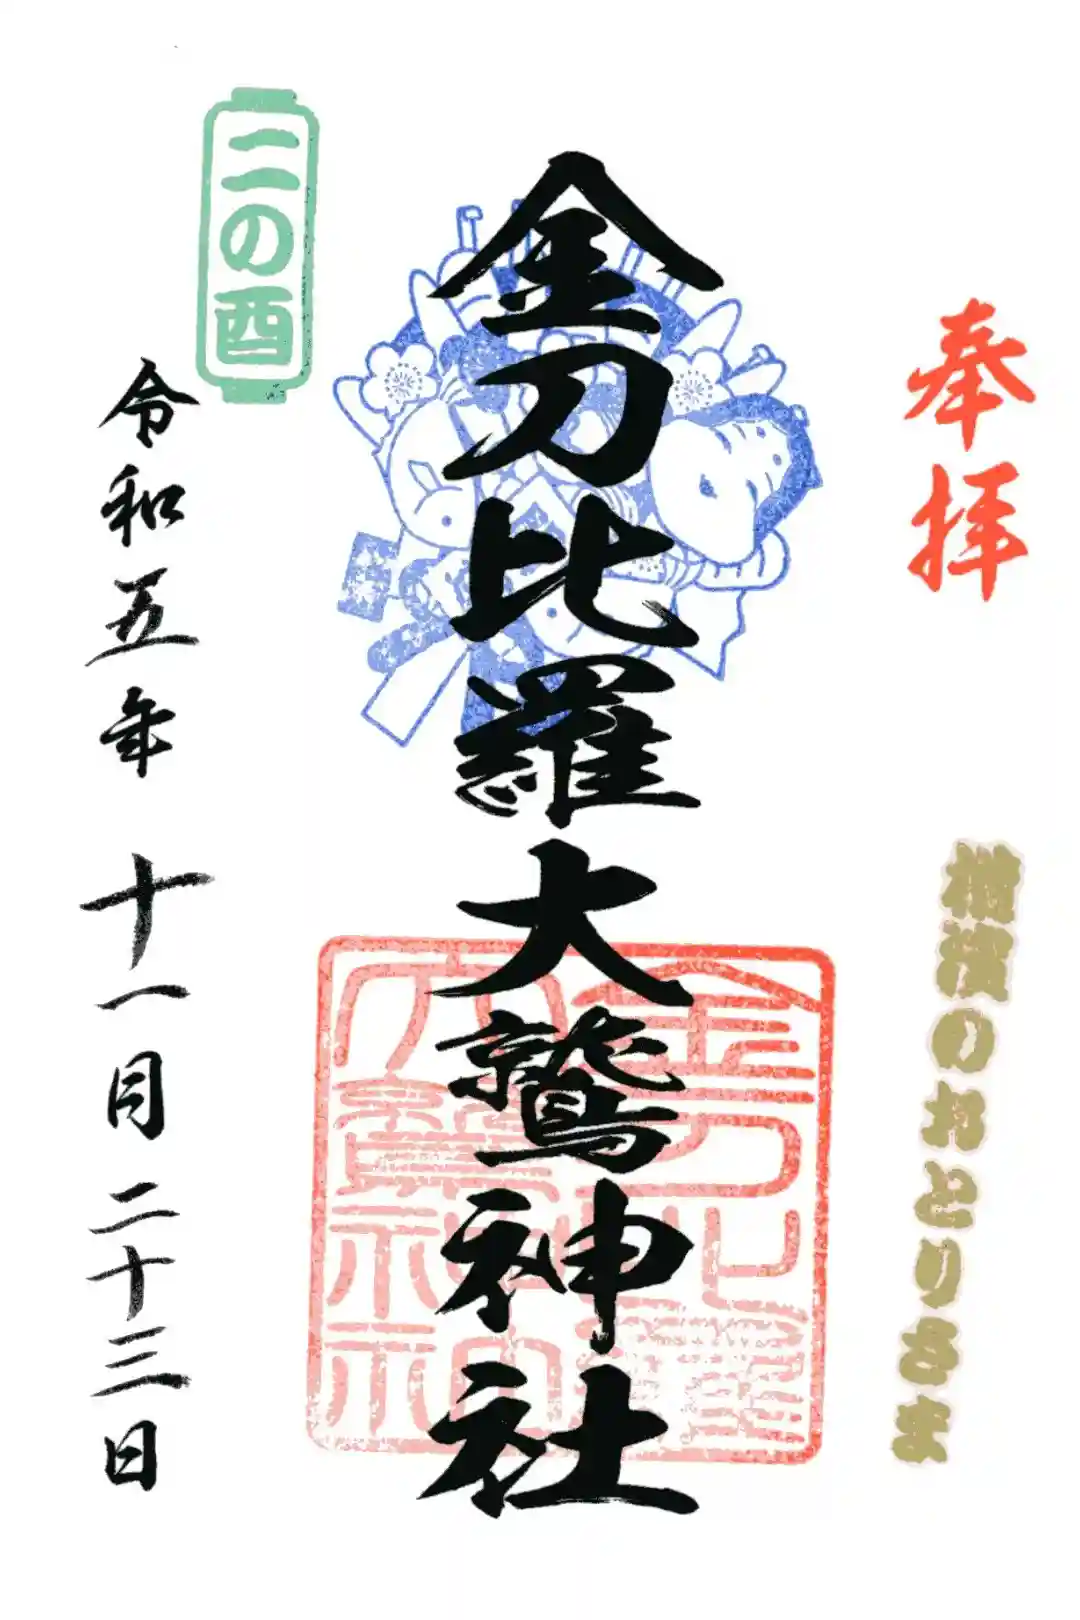 奉拝
横濱のおとりさま
金刀比羅大鷲神社
金刀比羅大鷲神社
二の酉
令和五年十一月二十三日